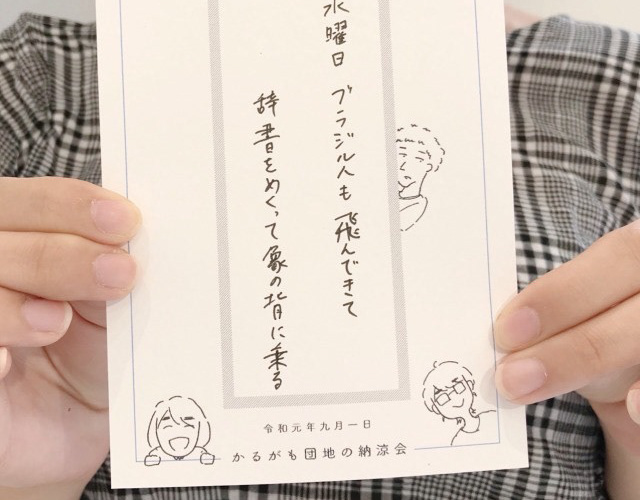 水曜日 ブラジル人も 飛んできて
辞書をめくって象の背に乗る
令和元年九月一日
かるがも団地の納涼会